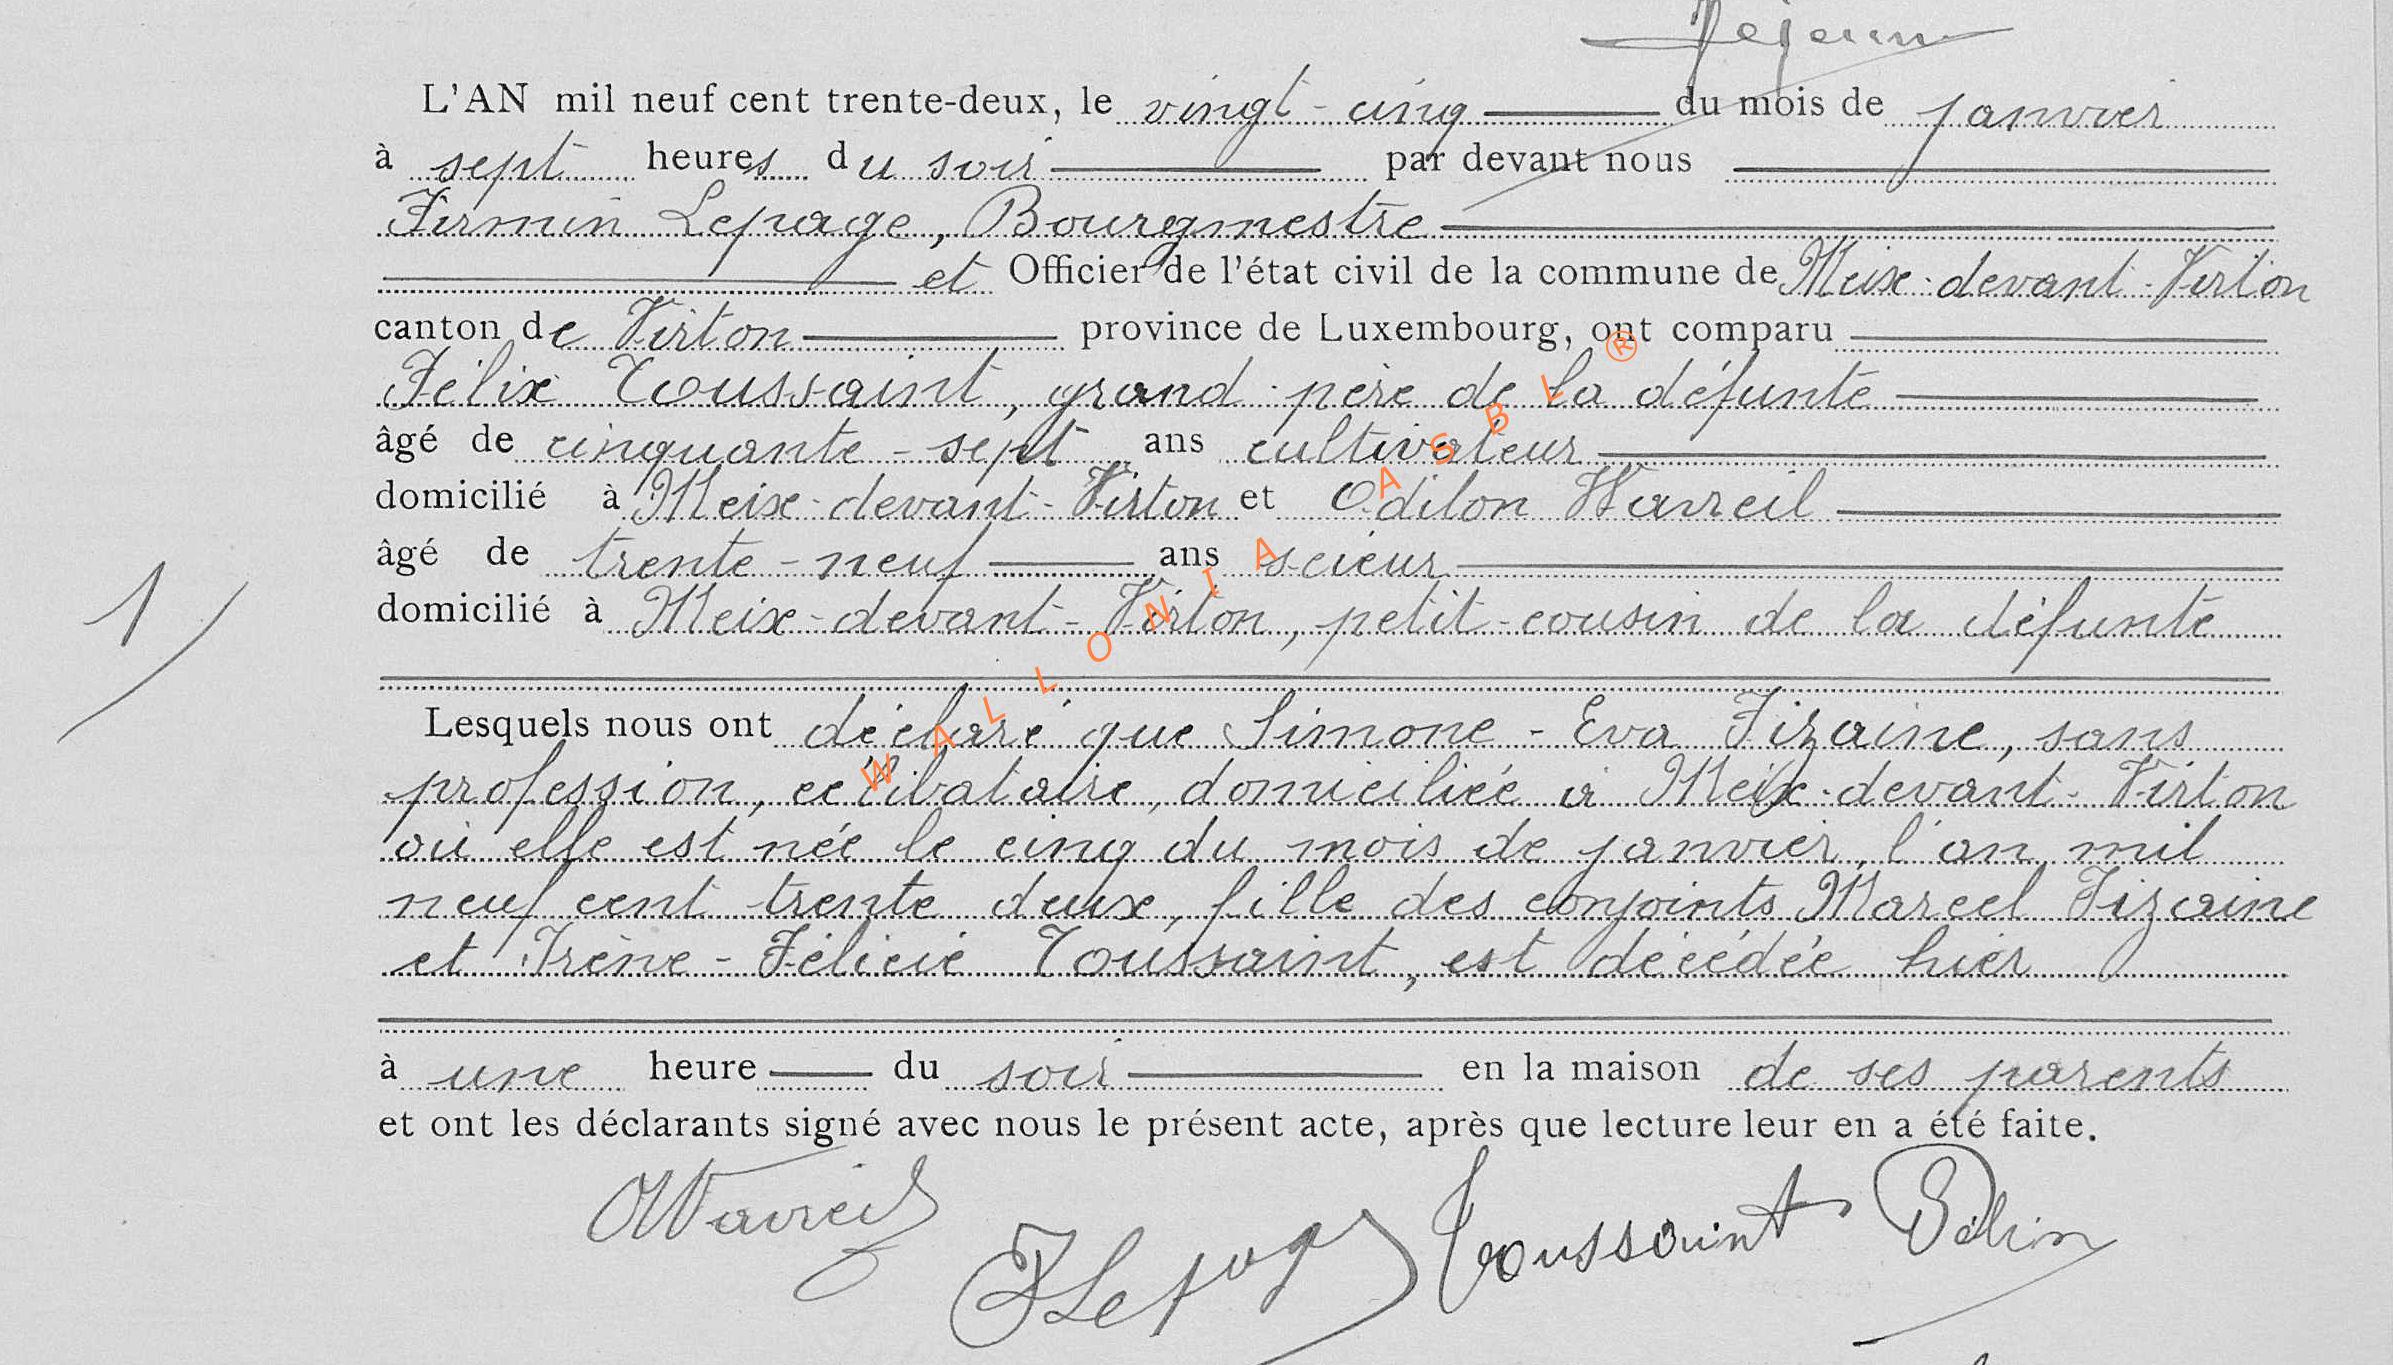 L'AN mil neuf cent trente-deux, le vingt-cinq du mois de janvier
à sept heures du soir par devant nous
Firmin Lepage, Bourgmestre
et Officier de l'état civil de la commune de Meix-devant-Virton
canton de Virton province de Luxembourg, ont comparu
Félix Toussaint, grand-père de la défunte
âgé de cinquante-sept ans cultivateur
domicilié à Meix-devant-Virton et Odilon Wavreil
âgé de trente-neuf ans scieur
domicilié à Meix-devant-Virton, petit-cousin de la défunte
1
Lesquels nous ont déclaré que Simone-Eva Fizaine, sans
profession, célibataire, domiciliée à Meix-devant-Virton
où elle est née le cinq du mois de janvier, l'an mil
neuf cent trente deux, fille des conjoints Marcel Fizaine
et Irène-Félicie Toussaint, est décédée hier
à une heure du soir en la maison de ses parents
et ont les déclarants signé avec nous le présent acte, après que lecture leur en a été faite.
OWavreil
FLepage
Toussaint
WALLONIA ASBL ®